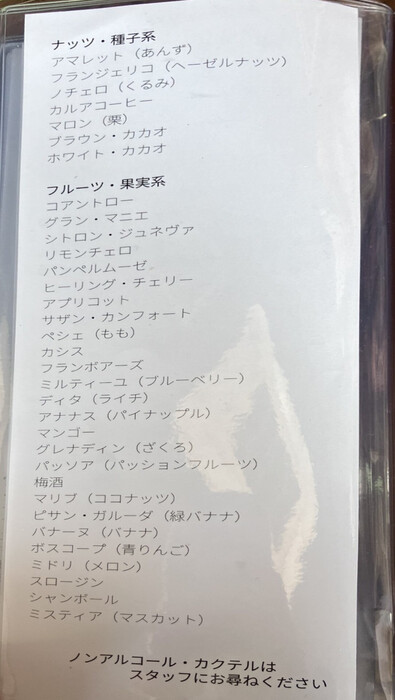 ナッツ・種子系
アマレット（あんず）
フランジェリコ（ヘーゼルナッツ）
ノチェロ（くるみ）
カルアコーヒー
マロン（栗）
ブラウン・カカオ
ホワイト・カカオ
フルーツ・果実系
コアントロー
グラン・マニエ
シトロン・ジュネヴァ
リモンチェロ
パンペルムーゼ
ヒーリング・チェリー
アプリコット
サザン・カンフォート
ペシェ（もも）
カシス
フランボアーズ
ミルティーユ（ブルーベリー）
ディタ（ライチ）
アナナス（パイナップル）
マンゴー
グレナディン（ざくろ）
パッソア（パッションフルーツ）
梅酒
マリブ（ココナッツ）
ピサン・ガルーダ（緑バナナ）
バナーヌ（バナナ）
ボスコープ（青りんご）
ミドリ（メロン）
スロージン
シャンボール
ミスティア（マスカット）
ノンアルコール・カクテルは
スタッフにお尋ねください